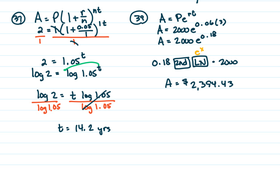 37) A = P(1 + r/n)^nt
2 = 1(1 + 0.05/1)^1t
1 1
2 = 1.05^t
log 2 = log 1.05^t
log 2 = t log 1.05
log 1.05 log 1.05
t = 14.2 yrs
39) A = Pe^rt
A = 2000 e^0.06(3)
A = 2000 e^0.18
e^x
0.18 2nd LN × 2000
A = $2,394.43